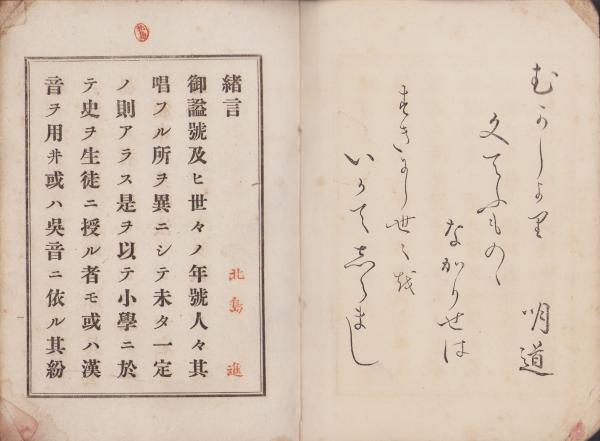 むかしより　明道
文てふものゝ
なかりせは
すきにし世々を
いかてしらまし
緒言
御謚號及ヒ世々ノ年號人々其
唱フル所ヲ異ニシテ未タ一定
ノ則アラス是ヲ以テ小學ニ於
テ史ヲ生徒ニ授ル者モ或ハ漢
音ヲ用井或ハ吳音ニ依ル其紛
北島進